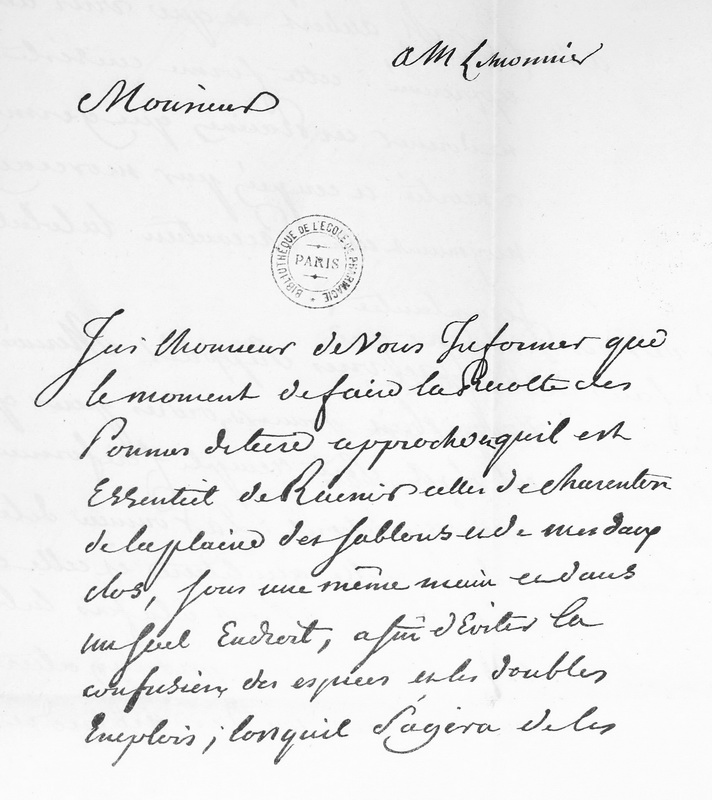 a M Lemonnier
Monsieur
BIBLIOTHÈQUE DE L'ECOLE DE PHARMACIE
PARIS
J'ai lhonneur de Vous Informer que
le moment de faire la Recolte des
Pommes de terre approche et quil est
Essentiel de Reunir celles de charenton
de la plaine des sablons et de mes deux
clos, sous une même main et dans
un seul Endroit, afin d'Eviter la
confusion des especes et les doubles
Emplois; lorsquil s'agira de les